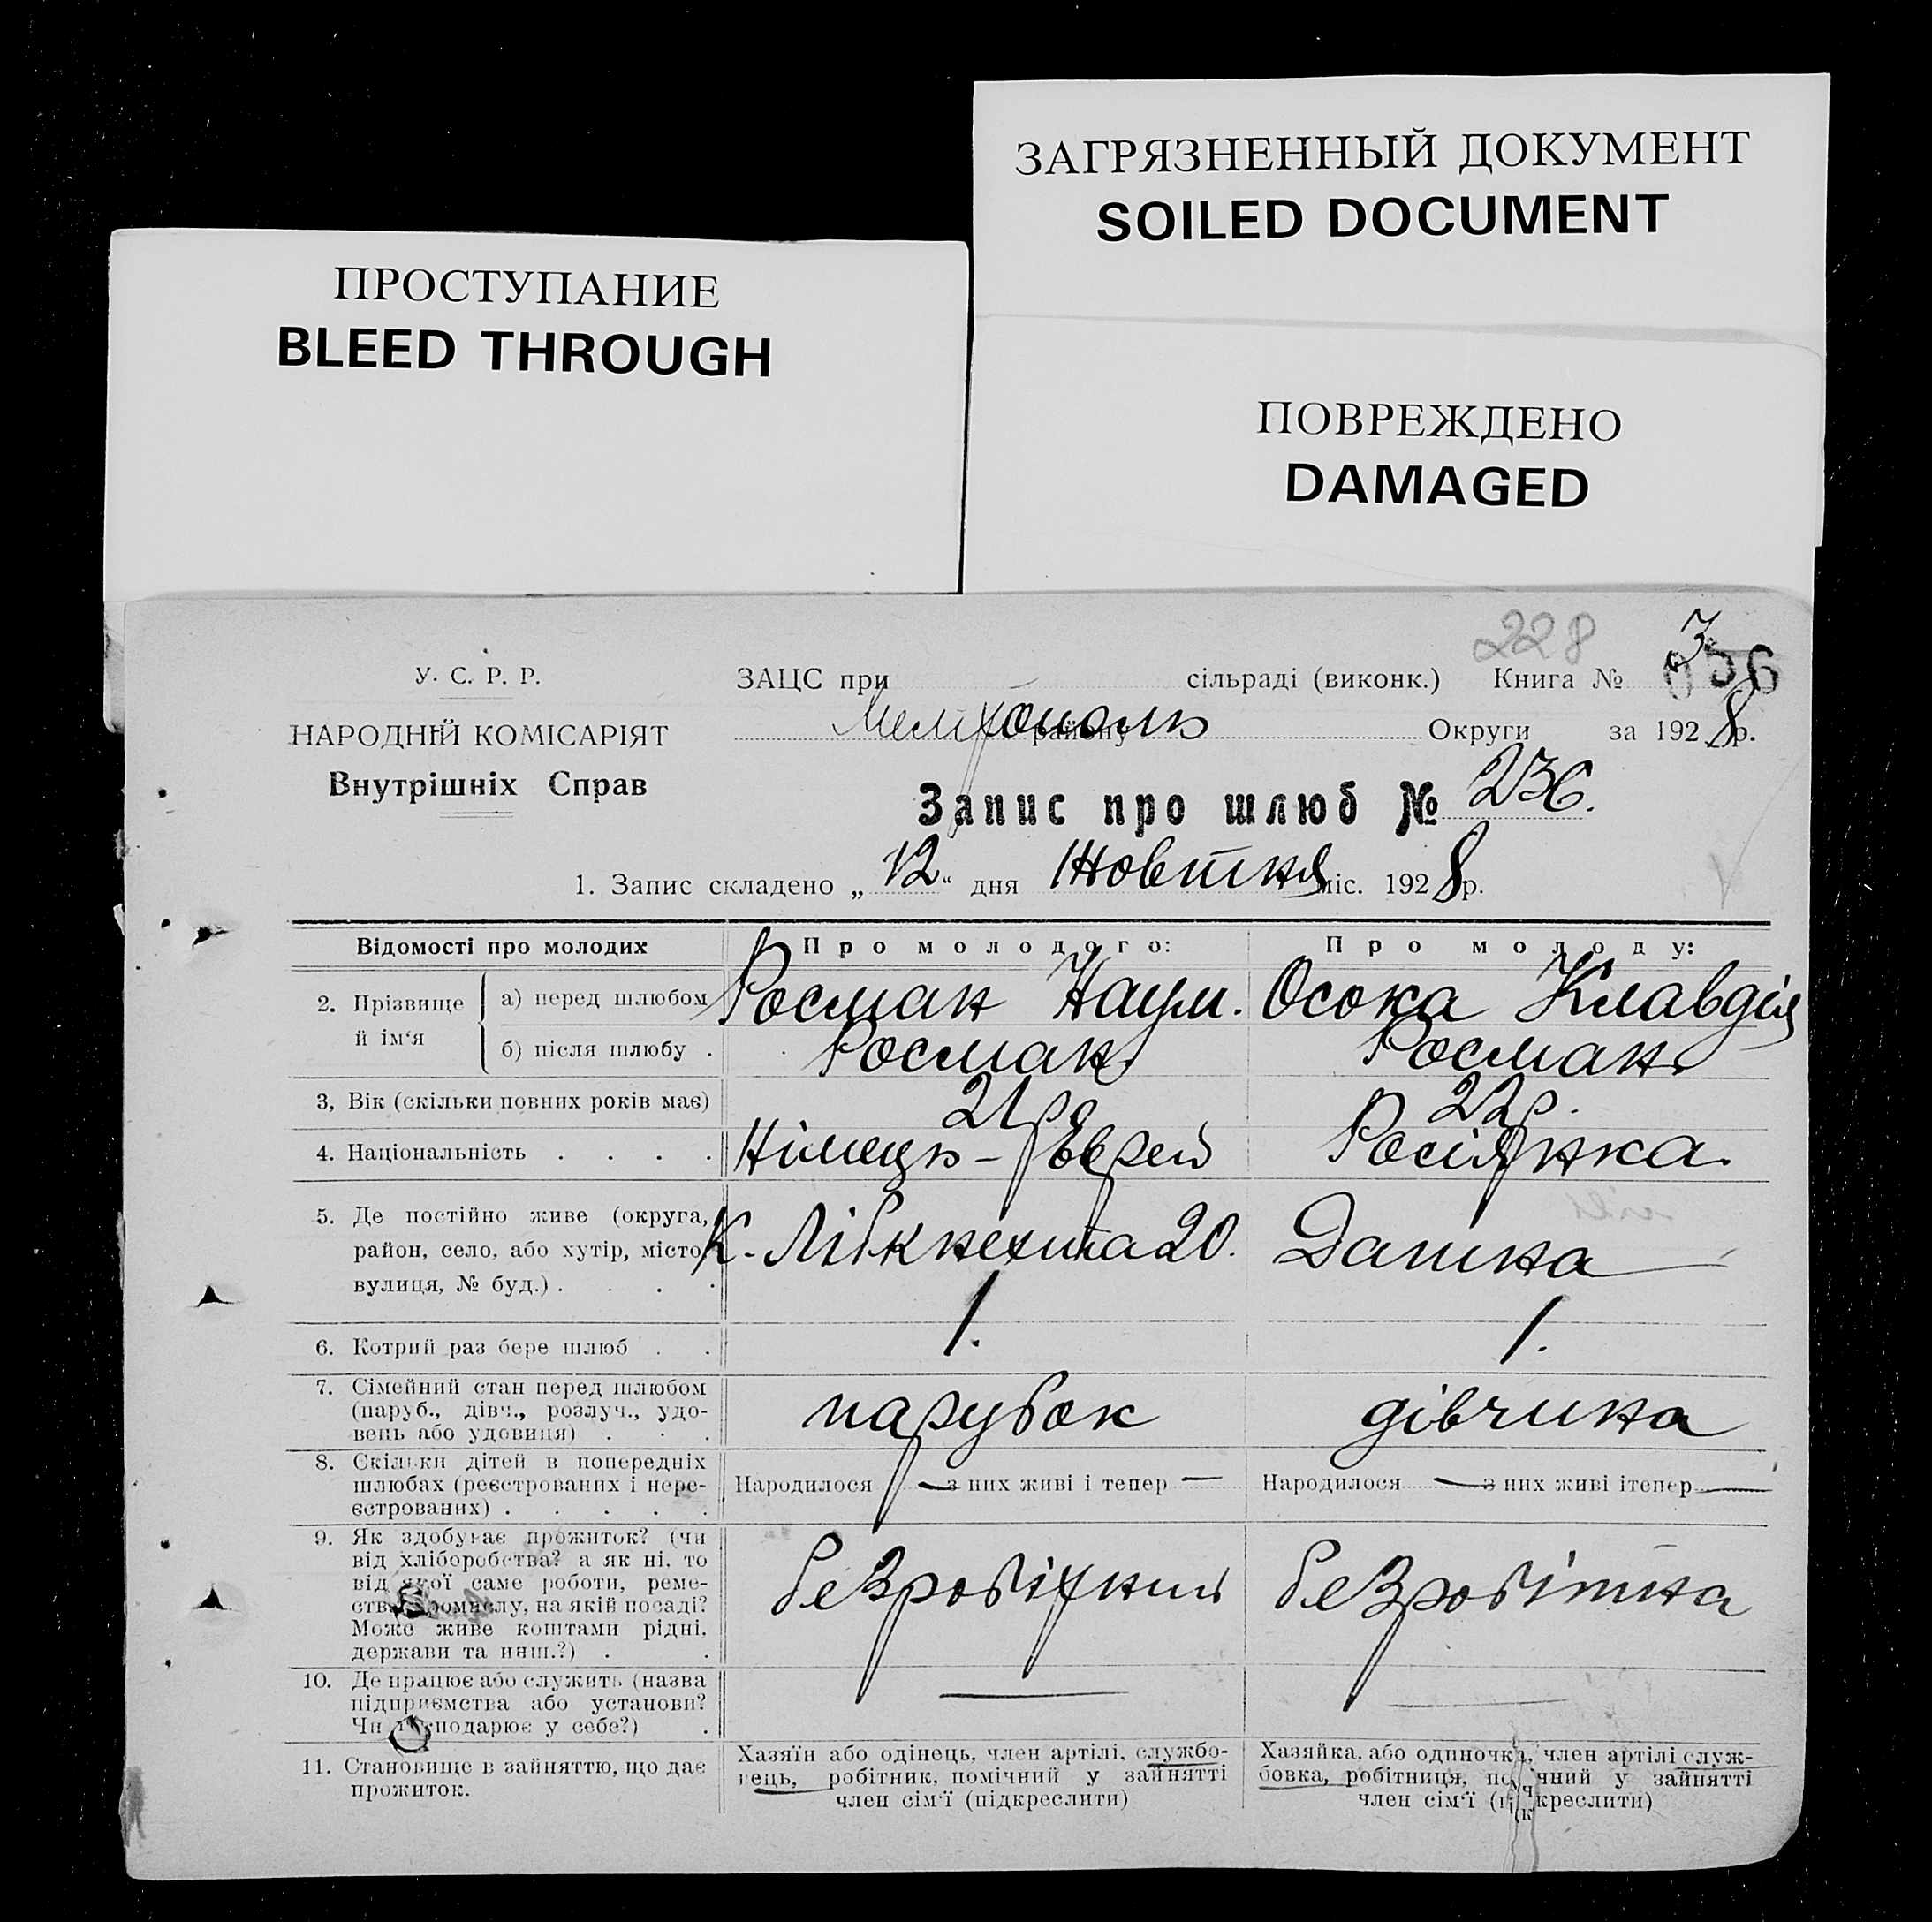 ЗАГРЯЗНЕННЫЙ ДОКУМЕНТ
SOILED DOCUMENT
ПРОСТУПАНИЕ
BLEED THROUGH
ПОВРЕЖДЕНО
DAMAGED
228
3
056
У. С. Р. Р.
ЗАЦС при сільраді (виконк.) Книга №
НАРОДНІЙ КОМІСАРІЯТ
Внутрішніх Справ
Мелітополь району Округи за 1928 р.
Запис про шлюб № 236.
1. Запис складено „12“ дня Жовтня міс. 1928 р.
Відомості про молодих
Про молодого:
Про молоду:
2. Прізвище й ім‘я
а) перед шлюбом
Росман Наум.
Осока Клавдія
б) після шлюбу .
Росман
Росман
3, Вік (скільки повних років має)
21 р.
22 р.
4. Національність . . . .
Німець - Єврей
Росіянка.
5. Де постійно живе (округа,
район, село, або хутір, місто,
вулиця, № буд.) . . . .
К. Лібкнехта 20.
6. Котрий раз бере шлюб . .
1.
1.
7. Сімейний стан перед шлюбом
(паруб., дівч., розлуч., удо-
вець або удовиця) . . .
парубок
дівчина
8. Скільки дітей в попередніх
шлюбах (реєстрованих і нере-
єстрованих) . . . . .
Народилося — з них живі і тепер —
Народилося — з них живі ітепер —
9. Як здобуває прожиток? (чи
від хліборобства? а як ні, то
від якої саме роботи, реме-
ства, промислу, на якій посаді?
Може живе коштами рідні,
держави та инш.?) . .
безробітний
безробітна
10. Де працює або служить (назва
підприємства або установи?
Чи господарює у себе?) .
—
—
11. Становище в зайняттю, що дає
прожиток.
Хазяїн або одінець, член артілі, службо-
вець, робітник, помічний у зайнятті
член сім‘ї (підкреслити)
Хазяйка, або одиночка, член артілі служ-
бовка, робітниця, помічний у зайнятті
член сім‘ї (підкреслити)